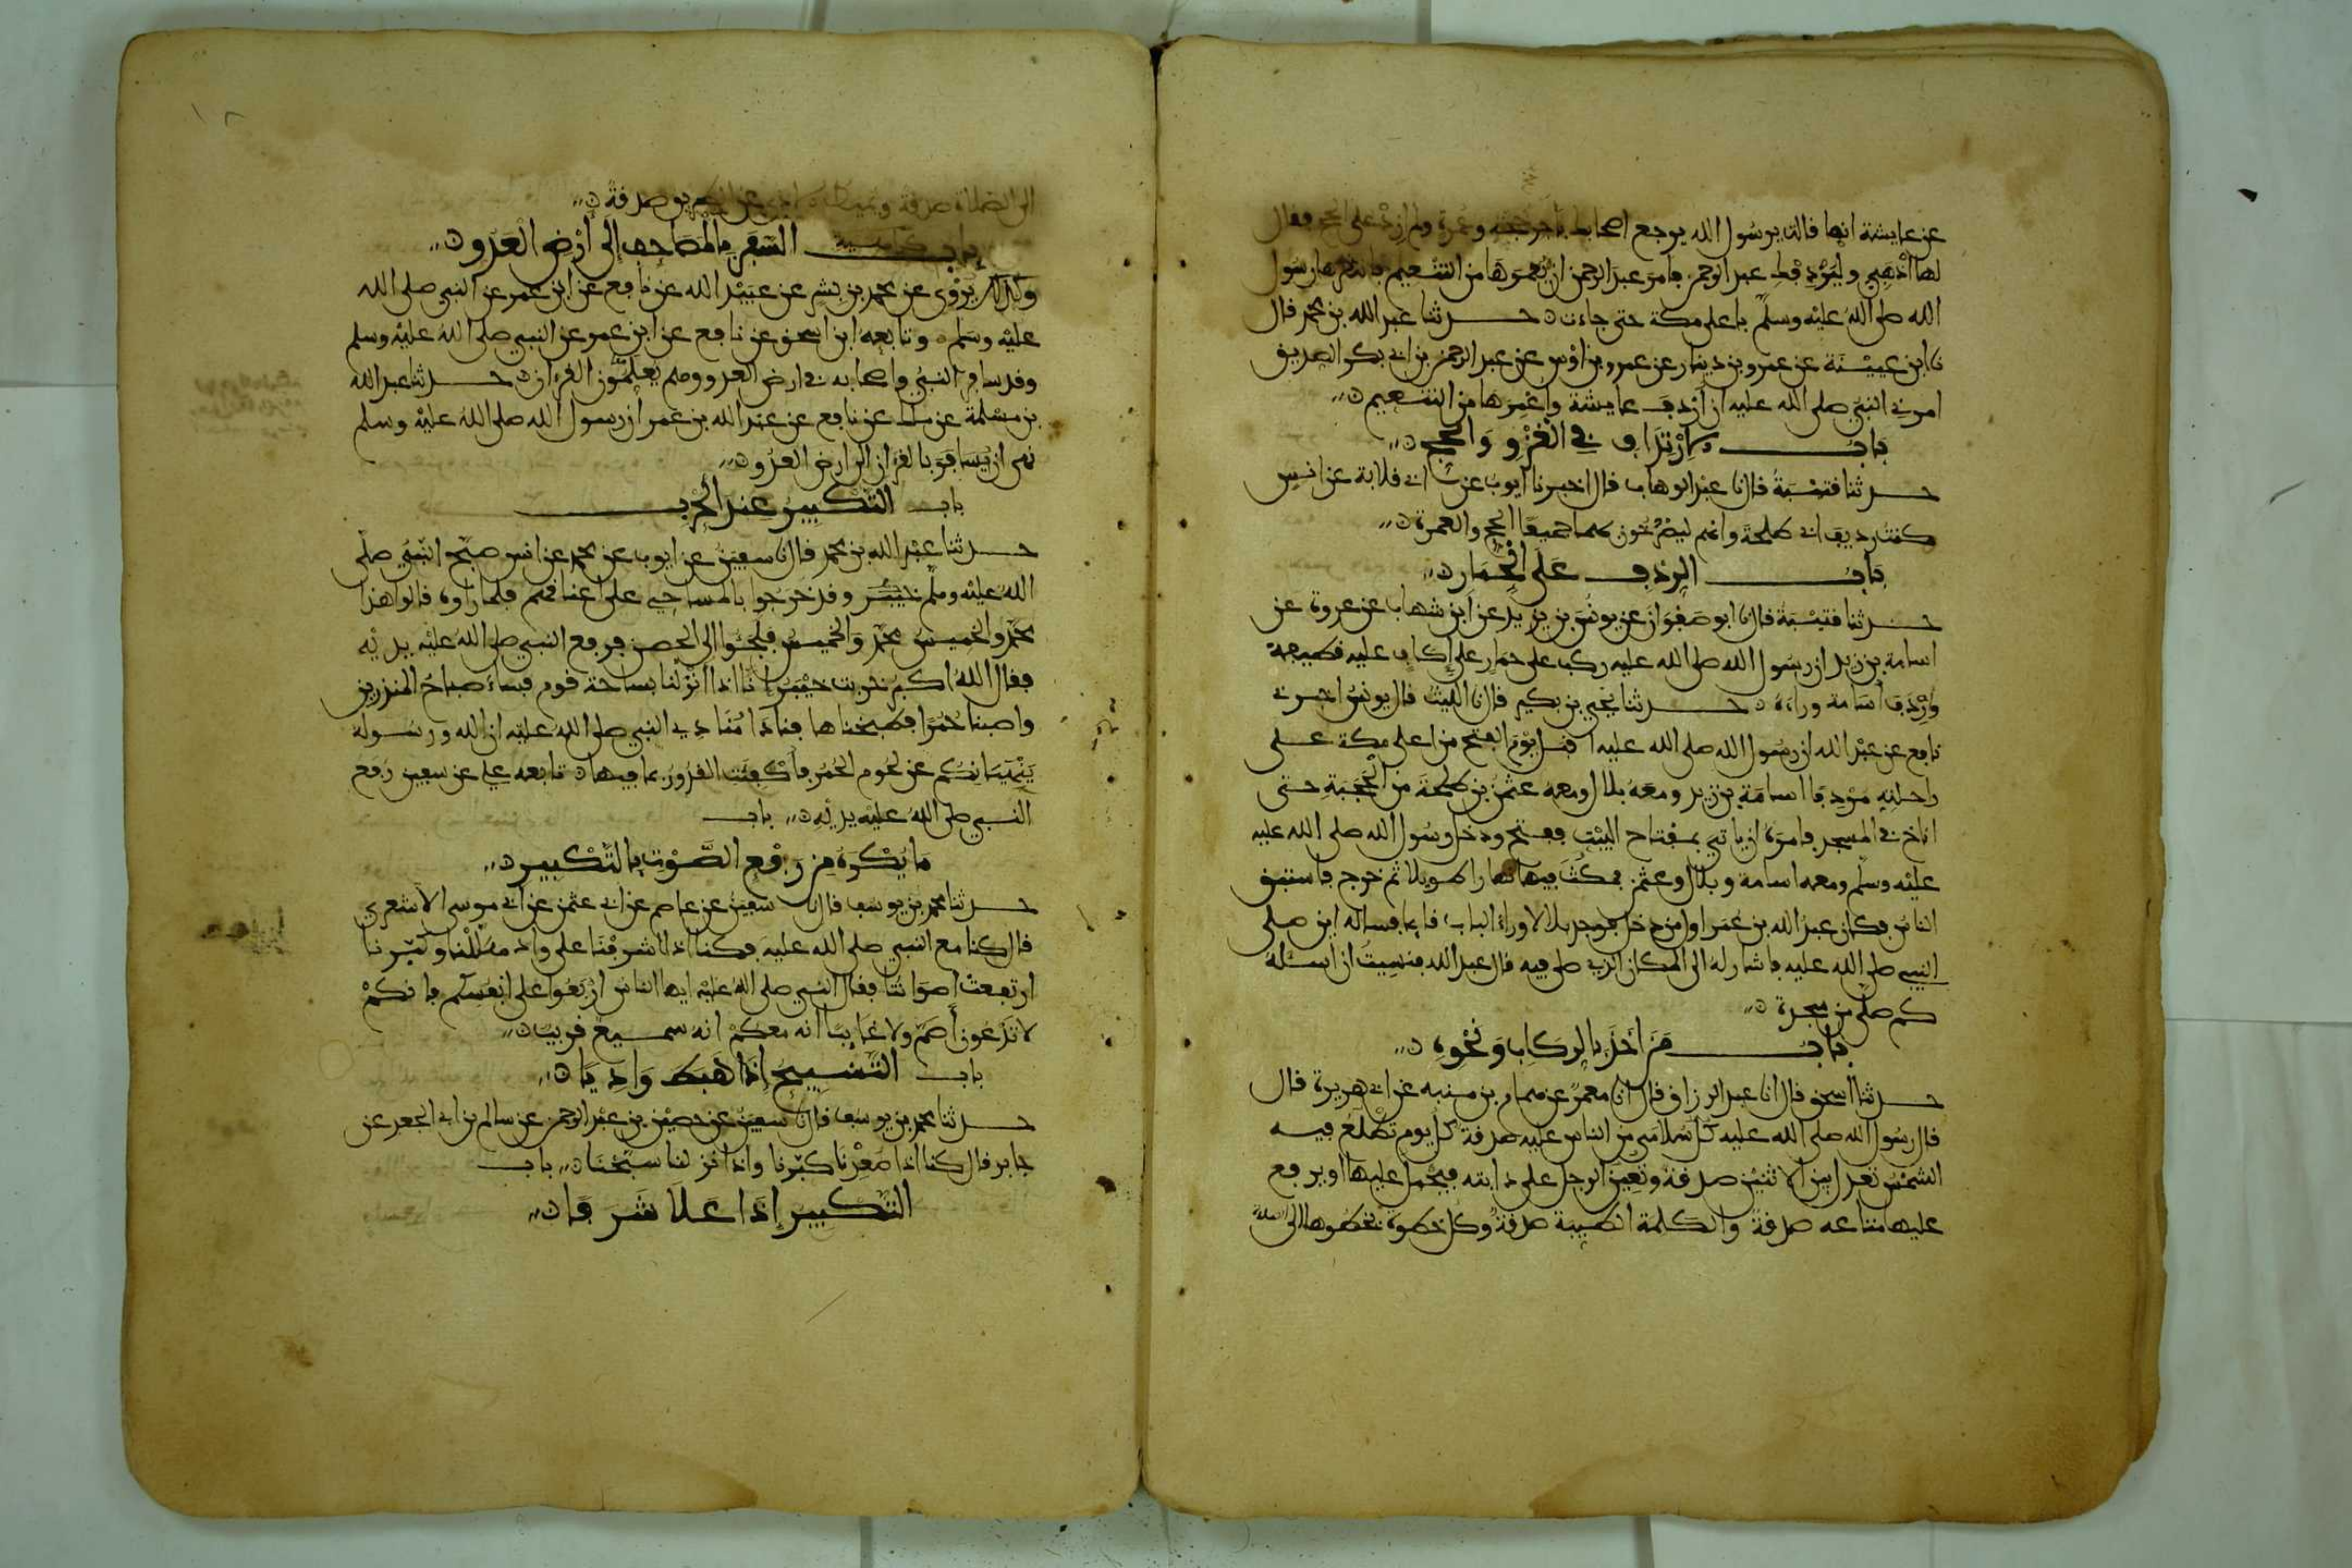 عن عايشة انها قالت يرسول الله يرجع اصحابك باجر حجة وعمرة ولم ازد على الحج فقال
لها اذهبي وليردفك عبد الرحمن فامر عبد الرحمن ان يعمرها من التنعيم فانتظرها رسول
الله صلى الله عليه وسلم باعلى مكة حتى جاءت حدثنا عبد الله بن محمد قال
نا ابن عيينة عن عمرو بن دينار عن عمرو بن اوس عن عبد الرحمن بن ابي بكر الصديق
امرني النبي صلى الله عليه ان اردف عايشة واعمرها من التنعيم
باب الارتداف في الغزو والحج
حدثنا قتيبة قال نا عبد الوهاب قال اخبرنا ايوب عن ابي قلابة عن انس
كنت رديف ابي طلحة وانهم ليصرخون بهما جميعا الحج والعمرة
باب الردف على الحمار
حدثنا قتيبة قال نا ابو صفوان عن يونس بن يزيد عن ابن شهاب عن عروة عن
اسامة بن زيد ان رسول الله صلى الله عليه ركب على حمار على إكاف عليه قطيفة
واردف أسامة وراءه حدثنا يحيى بن بكير قال نا الليث قال يونس اخبرني
نافع عن عبد الله ان رسول الله صلى الله عليه اقبل يوم الفتح من اعلى مكة على
راحلته مردفا اسامة بن زيد ومعه بلال ومعه عثمن بن طلحة من الحجبة حتى
اناخ في المسجد فامره ان ياتي بمفتاح البيت ففتح ودخل رسول الله صلى الله عليه
عليه وسلم ومعه اسامة وبلال وعثمن فمكث فيها نهارا طويلا ثم خرج فاستبق
الناس فكان عبد الله بن عمر اول من دخل فوجد بلالا وراء الباب قايما فساله اين صلى
النبي صلى الله عليه فاشار له الى المكان الذي صلى فيه قال عبد الله فنسيت ان اسئله
كم صلى من سجدة
باب من أخذ بالركاب ونحوه
حدثنا اسحق قال انا عبد الرزاق قال انا معمر عن همام بن منبه عن ابي هريرة قال
قال رسول الله صلى الله عليه كل سلامى من الناس عليه صدقة كل يوم تطلع فيه
الشمس تعدل بين الاثنين صدقة وتعين الرجل على دابته فيحمل عليها او يرفع
عليها متاعه صدقة والكلمة الطيبة صدقة وكل خطوة تخطوها الى الصلاة
الى الصلاة صدقة وتميط الاذى عن الطريق صدقة
باب كراهية السفر بالمصاحف إلى أرض العدو
وكذلك يروى عن محمد بن بشر عن عبيد الله عن نافع عن ابن عمر عن النبي صلى الله
عليه وسلم وتابعه ابن اسحق عن نافع عن ابن عمر عن النبي صلى الله عليه وسلم
وقد سافر النبي واصحابه في ارض العدو وهم يعلمون القرءان حدثنا عبد الله
بن مسلمة عن ملك عن نافع عن عبد الله بن عمر ان رسول الله صلى الله عليه وسلم
نهى ان يسافر بالقرءان الى ارض العدو
باب التكبير عند الحرب
حدثنا عبد الله بن محمد قال نا سفين عن ايوب عن محمد عن انس صبح النبي صلى
الله عليه وسلم خيبر وقد خرجوا بالمساحي على اعناقهم فلما راوه قالوا هذا
محمد والخميس محمد والخميس فلجئوا الى الحصن فرفع النبي صلى الله عليه يديه
فقال الله اكبر خربت خيبر انا اذا انزلنا بساحة قوم فساء صباح المنذرين
واصبنا حمرا فطبخناها فنادا منادي النبي صلى الله عليه ان الله ورسوله
ينهيانكم عن لحوم الحمر فأكفئت القدور بما فيها تابعه علي عن سفين رفع
النبي صلى الله عليه يديه باب
ما يكره من رفع الصوت بالتكبير
حدثنا محمد بن يوسف قال نا سفين عن عاصم عن ابي عثمن عن ابي موسى الاشعري
قال كنا مع النبي صلى الله عليه فكنا اذا اشرفنا على واد هللنا وكبرنا
ارتفعت اصواتنا فقال النبي صلى الله عليه ايها الناس اربعوا على انفسكم فانكم
لا تدعون أصم ولا غايبا انه معكم انه سميع قريب
باب التسبيح إذا هبط واديا
حدثنا محمد بن يوسف قال نا سفين عن حصين بن عبد الرحمن عن سالم بن ابي الجعد عن
جابر قال كنا اذا صعدنا كبرنا واذا نزلنا سبحنا باب
التكبير إذا علا شرفا